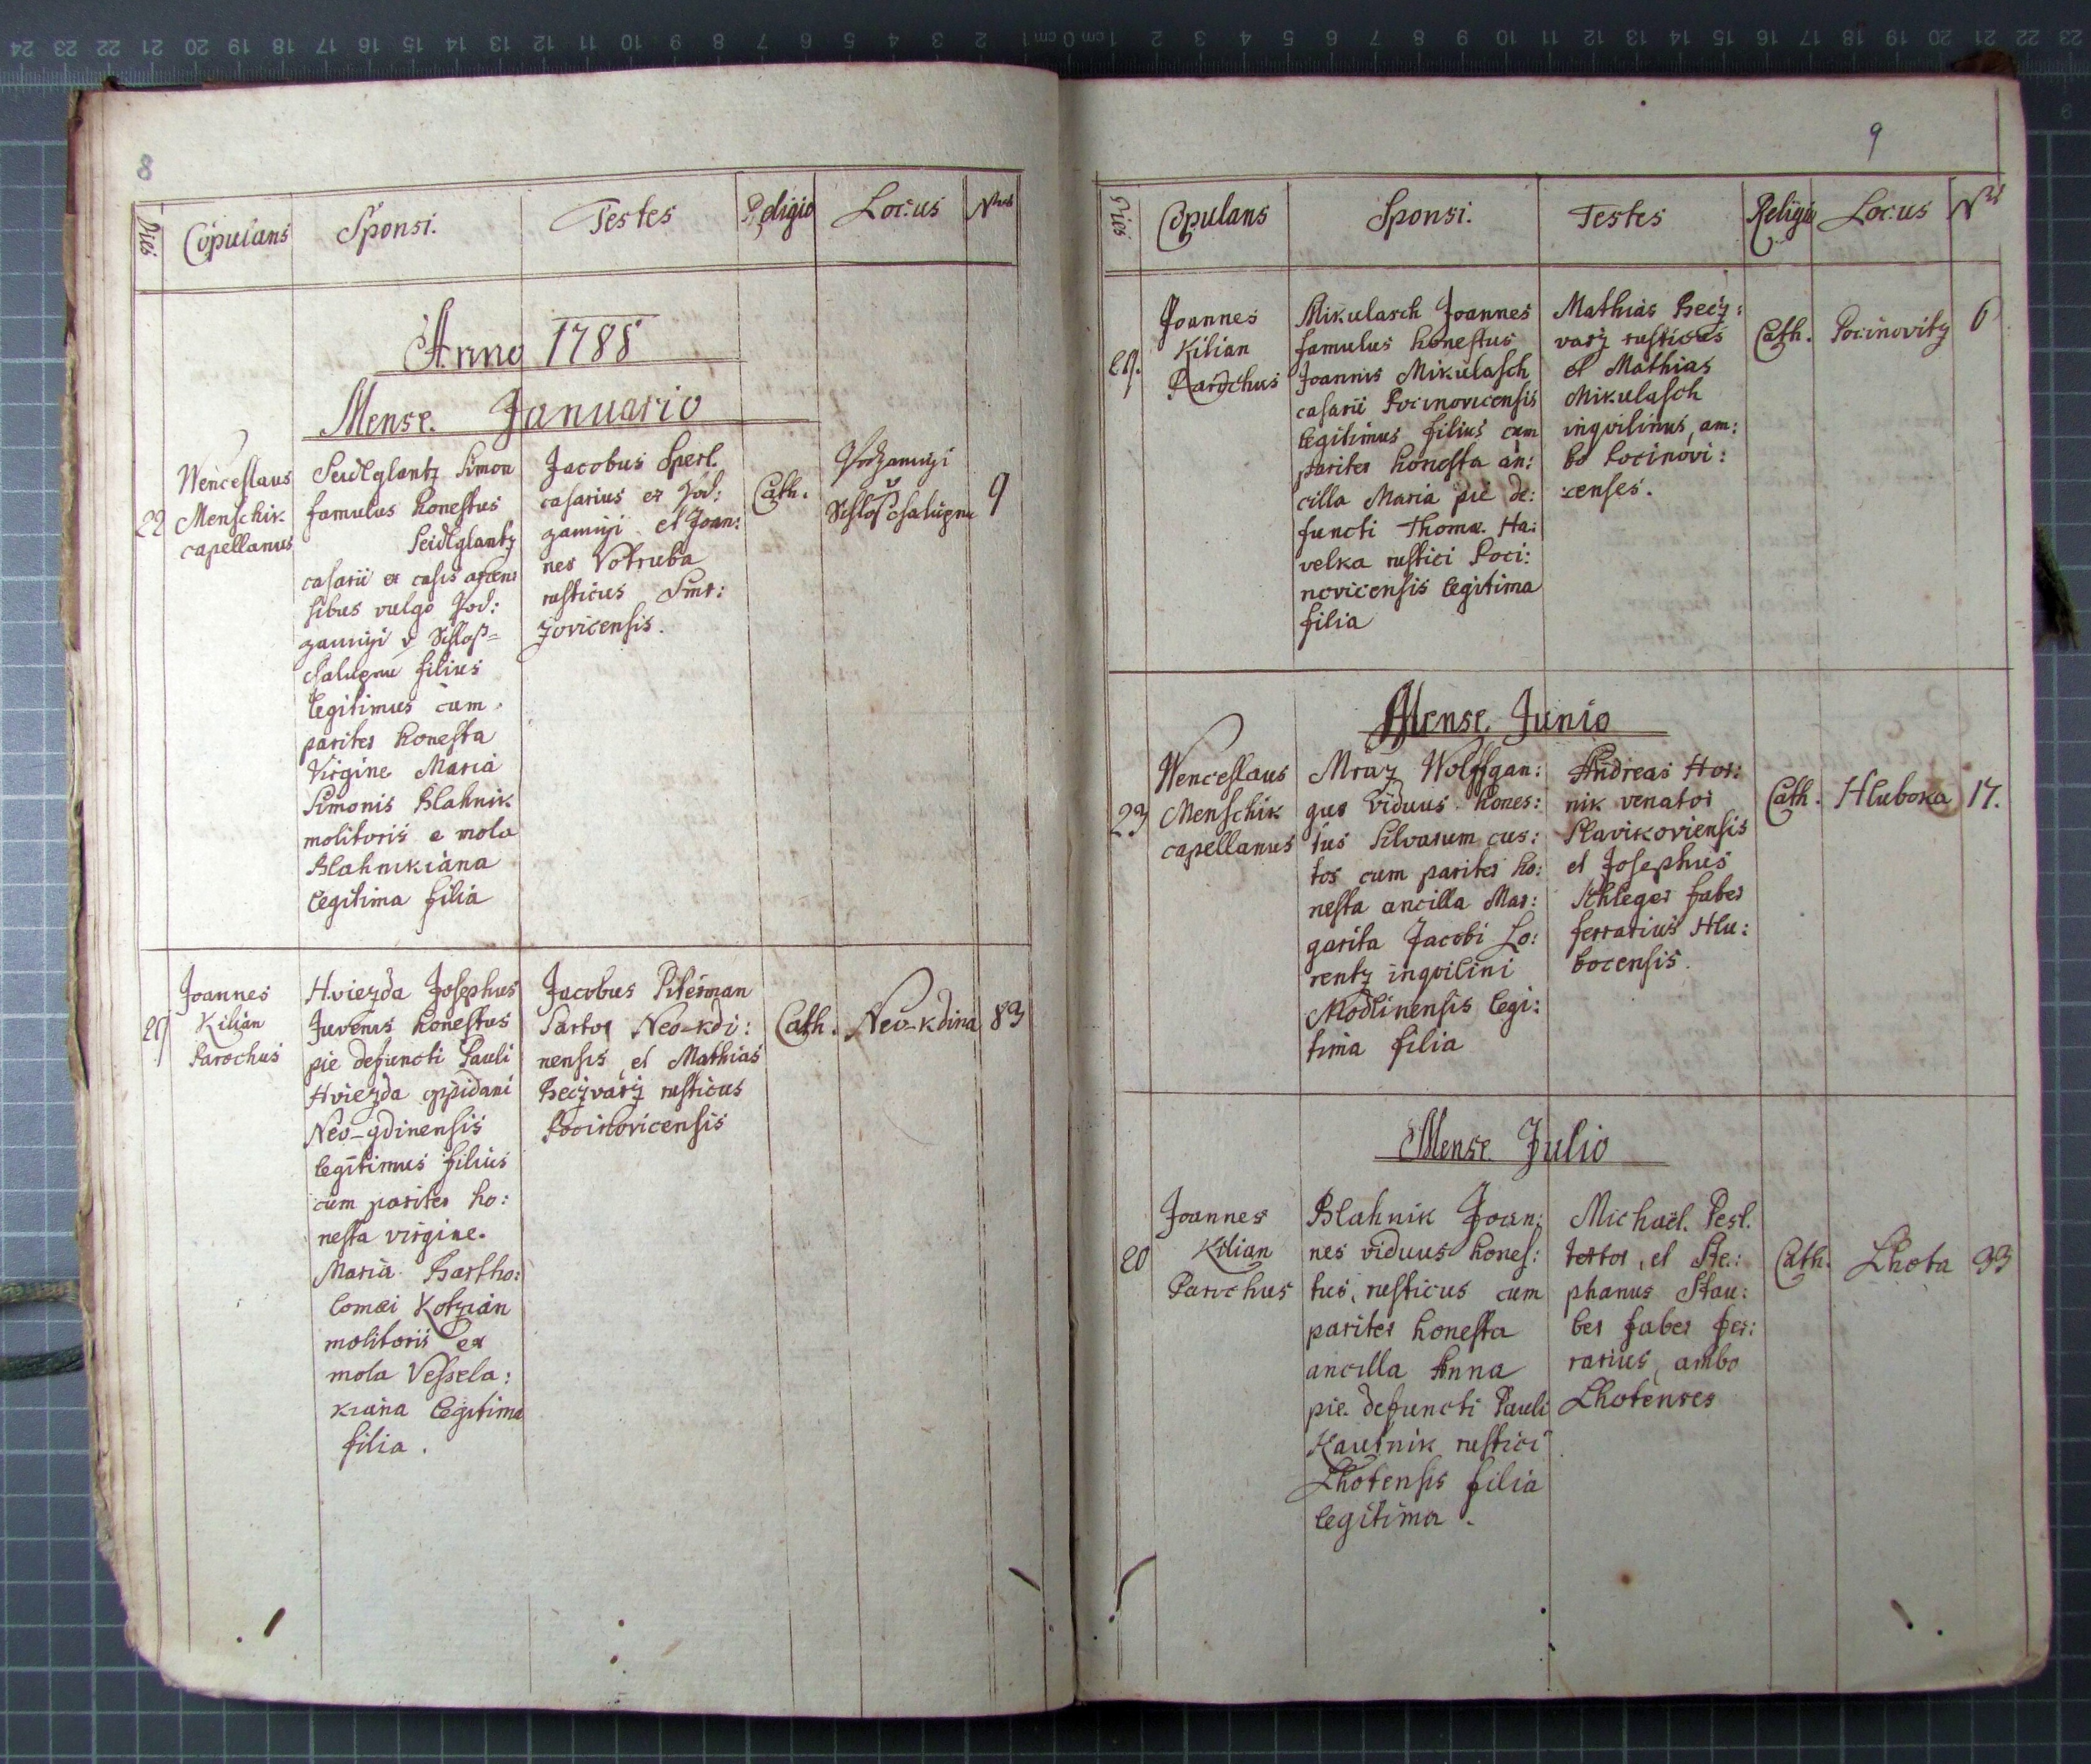 8
Dies Copulans Sponsi. Testes Religio Locus Nrus
Anno 1788
Mense Januario
22
Wenceslaus
Menschik
capellanus
Seidlglantz Simon
famulus honestus
Seidlglantz
casarii ex casis arcen:
sibus vulgo Pod:
zamiji v Schloß=
chalupnu filius
legitimus cum
pariter honesta
Virgine Maria
Simonis Blahnik
molitoris e mola
Blahnikiana
legitima filia
Jacobus Sperl.
casarius ex Pod:
zamiji et Joan:
nes Votruba
rusticus Smr:
zovicensis.
Cath.
Podzamiji
v
Schloß chalupnu
9
29
Joannes
Kilian
Parochus
Hviezda Josephus
Juvenis honestus
pie defuncti Pauli
Hviezda oppidani
Neo-gdinensis
legitimus filius
cum pariter ho:
nesta virgine
Maria Bartho:
lomæi Kotzian
molitoris ex
mola Vessela:
kiana legitima
filia.
Jacobus Piterman
Sartor Neo-kdi:
nensis, et Mathias
Beczvarz rusticus
Pocinovicensis
Cath.
Neo-kdina
83
9
Dies Copulans Sponsi. Testes Religio Locus Nrs
29.
Joannes
Kilian
Parochus
Mikulasch Joannes
famulus honestus
Joannis Mikulasch
casarii Pocinovicensis
legitimus filius cum
pariter honesta an:
cilla Maria pie de:
functi Thomæ Ha:
velka rustici Poci:
novicensis legitima
filia
Mathias Becz:
varz rusticus
et Mathias
Mikulasch
inqvilinus, am:
bo Pocinovi:
:censes.
Cath.
Pocinovitz
6
Mense Junio
23
Wenceslaus
Menschik
capellanus
Mraz Wolffgan:
gus Viduus hones:
tus Silvarum cus:
tos cum pariter ho:
nesta ancilla Mar:
garita Jacobi Lo:
rentz inqvilini
Modlinensis legi:
tima filia
Andreas Hor:
nik venator
Slavikoviensis
et Josephus
Schleger faber
ferrarius Hlu:
bocensis.
Cath.
Hluboka
17.
Mense Julio
20
Joannes
Kilian
Parochus
Blahnik Joan:
nes viduus hones:
tus, rusticus cum
pariter honesta
ancilla Anna
pie defuncti Pauli
Kautnik rustici
Lhotensis filia
legitima.
Michaël Pesl.
textor, et Ste:
phanus Stau:
ber faber fer:
rarius, ambo
Lhotenses
Cath.
Lhota
33